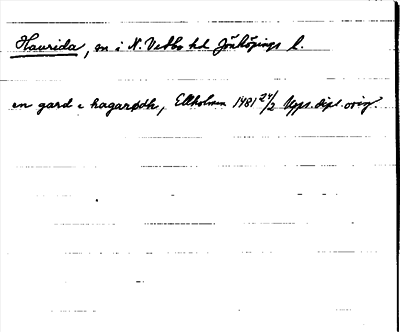 Haurida, sn i N. Vedbo hd Jönköpings l.
en gard e hagarødh, Ekholmen 1481 24/2 Upps. dipl. orig.